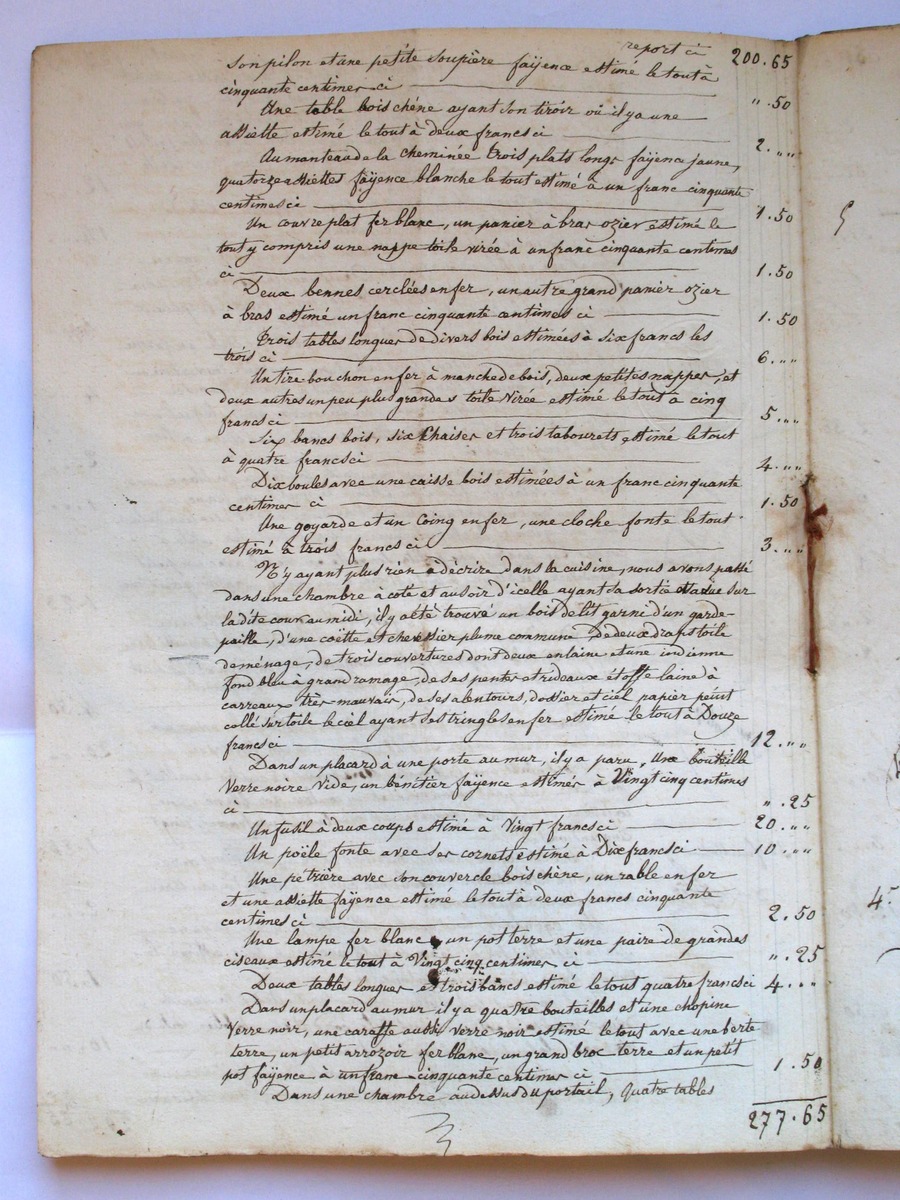 report ci 200.65
son pilon et une petite soupière faÿence estimé le tout à
cinquante centimes ci ". 50
Une table bois chêne ayant son tiroir où il y a une
assiette estimé le tout à deux francs ci 2. ""
Au manteau de la cheminée trois plats longs faÿence jaune,
quatorze assiettes faÿence blanche le tout estimé à un franc cinquante
centimes ci 1.50
Un couvre plat fer blanc, un panier à bras ozier estimé le
tout y compris une nappe toile virée à un franc cinquante centimes
ci 1.50
Deux bennes cerclées en fer, un autre grand panier ozier
à bras estimé un franc cinquante centimes ci 1.50
Trois tables longues de divers bois estimées à six francs les
trois ci 6. ""
Un tire bouchon en fer à manche de bois, deux petites nappes, et
deux autres un peu plus grandes toile virée estimé le tout à cinq
francs ci 5. ""
Six bancs bois, six chaises et trois tabourets estimé le tout
à quatre francs ci 4. ""
Dix boules avec une caisse bois estimées à un franc cinquante
centimes ci 1.50
Une goyarde et un Coing en fer, une cloche fonte le tout
estimé à trois francs ci 3. ""
N'y ayant plus rien à décrire dans la cuisine, nous avons passé
dans une chambre à coté et au soir d'icelle ayant sa sortie et vue sur
la dite cour au midi, il y a été trouvé un bois de lit garni d'un garde-
paille, d'une coëtte et chevssier plume commune de deux draps toile
de ménage, de trois couvertures dont deux en laine et une indienne
fond bleu à grand ramage, de ses pentes et rideaux étoffe laine à
carreaux très mauvais, de ses alentours, dossier et ciel papier peint
collé sur toile le ciel ayant ses tringles en fer estimé le tout à Douze
francs ci 12. ""
Dans un placard à une porte au mur, il y a paru, Une bouteille
Verre noire Vide, un bénitier faÿence estimés à Vingt cinq centimes
ci ". 25
Un fusil à deux coups estimé à Vingt francs ci 20. ""
Un poële fonte avec ses cornets estimé à Dix francs ci 10. ""
Une pétrière avec son couvercle bois chêne, un rable en fer
et une assiette faÿence estimé le tout à deux francs cinquante
centimes ci 2.50
Une lampe fer blanc, un pot terre et une paire de grandes
ciseaux estimé le tout à Vingt cinq centimes ci ". 25
Deux tables longues et trois bancs estimé le tout quatre francs ci 4. ""
Dans un placard au mur il y a quatre bouteilles et une chopine
Verre noir, une caraffe aussi verre noir estimé le tout avec une berte
terre, un petit arrozoir fer blanc, un grand broc terre et un petit
pot faÿence à un franc cinquante centimes ci 1.50
Dans une chambre au dessus du portail, quatre tables
277.65